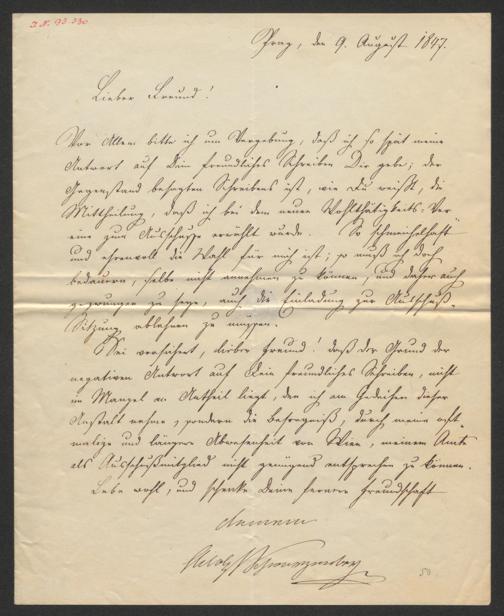 I.N. 93.330
Prag, den 9. August 1847.
Lieber Freund!
Vor Allem bitte ich um Vergebung, daß ich so spät meine
Antwort auf Dein freundliches Schreiben Dir gebe; der
Gegenstand besagten Schreibens ist, wie Du weißt, die
Mittheilung, daß ich bei dem neuen Wohlthätigkeits-Ver-
ein zum Ausschusse erwählt wurde. So schmeichelhaft
und ehrenvoll die Wahl für mich ist; so muß ich doch
bedauern, selbe nicht annehmen zu können, und daher auch
gezwungen zu seyn, auch die Einladung zur Ausschuß-
Sitzung ablehnen zu müssen.
Sei versichert, lieber Freund! daß der Grund der
negativen Antwort auf Dein freundliches Schreiben, nicht
im Mangel an Antheil liegt, den ich am Gedeihen dieser
Anstalt nehme, sondern die Besorgniß, durch meine oft-
malige und längere Abwesenheit von Wien, meinem Amte
als Ausschußmitglied nicht genügend entsprechen zu können.
Lebe wohl, und schenke Deine fernere Freundschaft
Deinem
Adolf Schwarzenberg